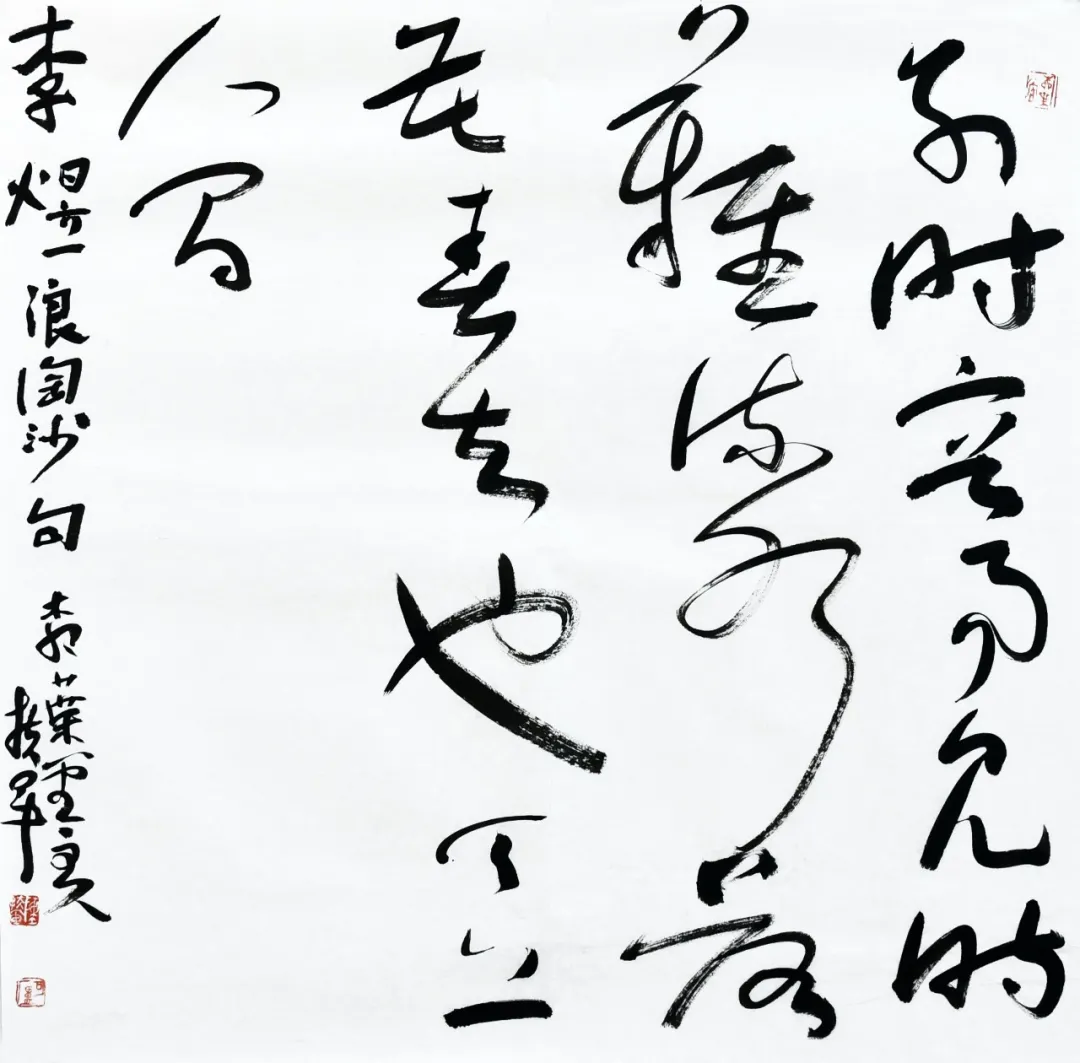 别时容易见时
難流水落
花春去也天上
人间
李煜浪淘沙句 葉主人